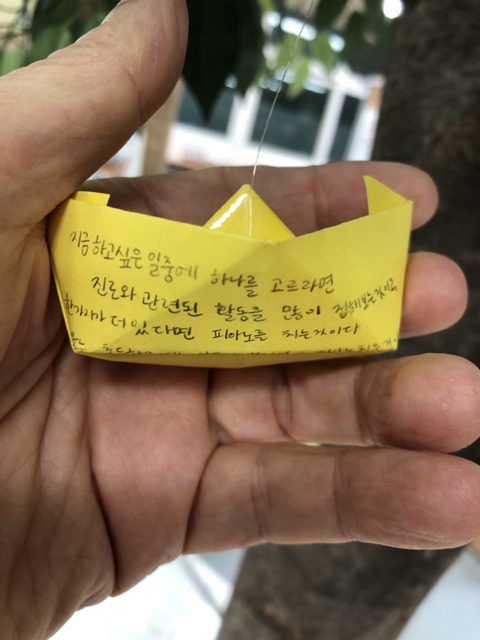 지금 하고싶은 일중에 하나를 고르라면
진로와 관련된 활동을 많이 접해보는것이고
한가지가 더 있다면 피아노를 치는것이다